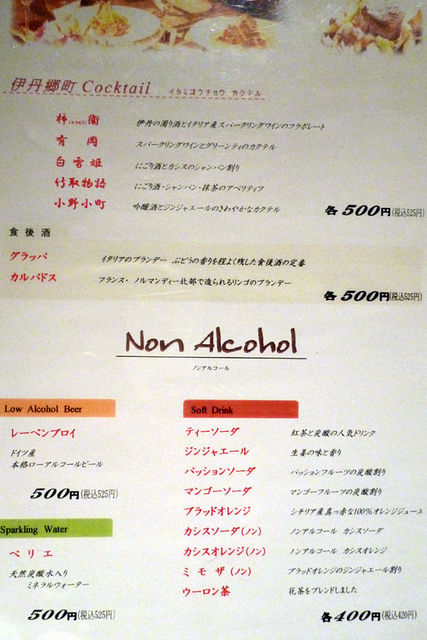 伊丹郷町 Cocktail イタミゴウチョウ カクテル
柿衞 伊丹の濁り酒とイタリア産スパークリングワインのコラボレート
有岡 スパークリングワインとグリーンティのカクテル
白雪姫 にごり酒とカシスのシャンパン割り
竹取物語 にごり酒・シャンパン・抹茶のアペリティフ
小野小町 吟醸酒とジンジャエールのさわやかなカクテル
各 500円(税込525円)
食後酒
グラッパ イタリアのブランデー ぶどうの香りを程よく残した食後酒の定番
カルバドス フランス・ノルマンディー北部で造られるリンゴのブランデー
各 500円(税込525円)
Non Alcohol
ノンアルコール
Low Alcohol Beer
レーベンブロイ
ドイツ産
本格ローアルコールビール
500円(税込525円)
Sparkling Water
ペリエ
天然炭酸水入り
ミネラルウォーター
500円(税込525円)
Soft Drink
ティーソーダ 紅茶と炭酸の人気ドリンク
ジンジャエール 生姜の味と香り
パッションソーダ パッションフルーツの炭酸割り
マンゴーソーダ マンゴーフルーツの炭酸割り
ブラッドオレンジ シチリア産真っ赤な100%オレンジジュース
カシスソーダ(ノン) ノンアルコール カシスソーダ
カシスオレンジ(ノン) ノンアルコール カシスオレンジ
ミモザ(ノン) ブラッドオレンジのジンジャエール割り
ウーロン茶 花茶をブレンドしました
各 400円(税込420円)